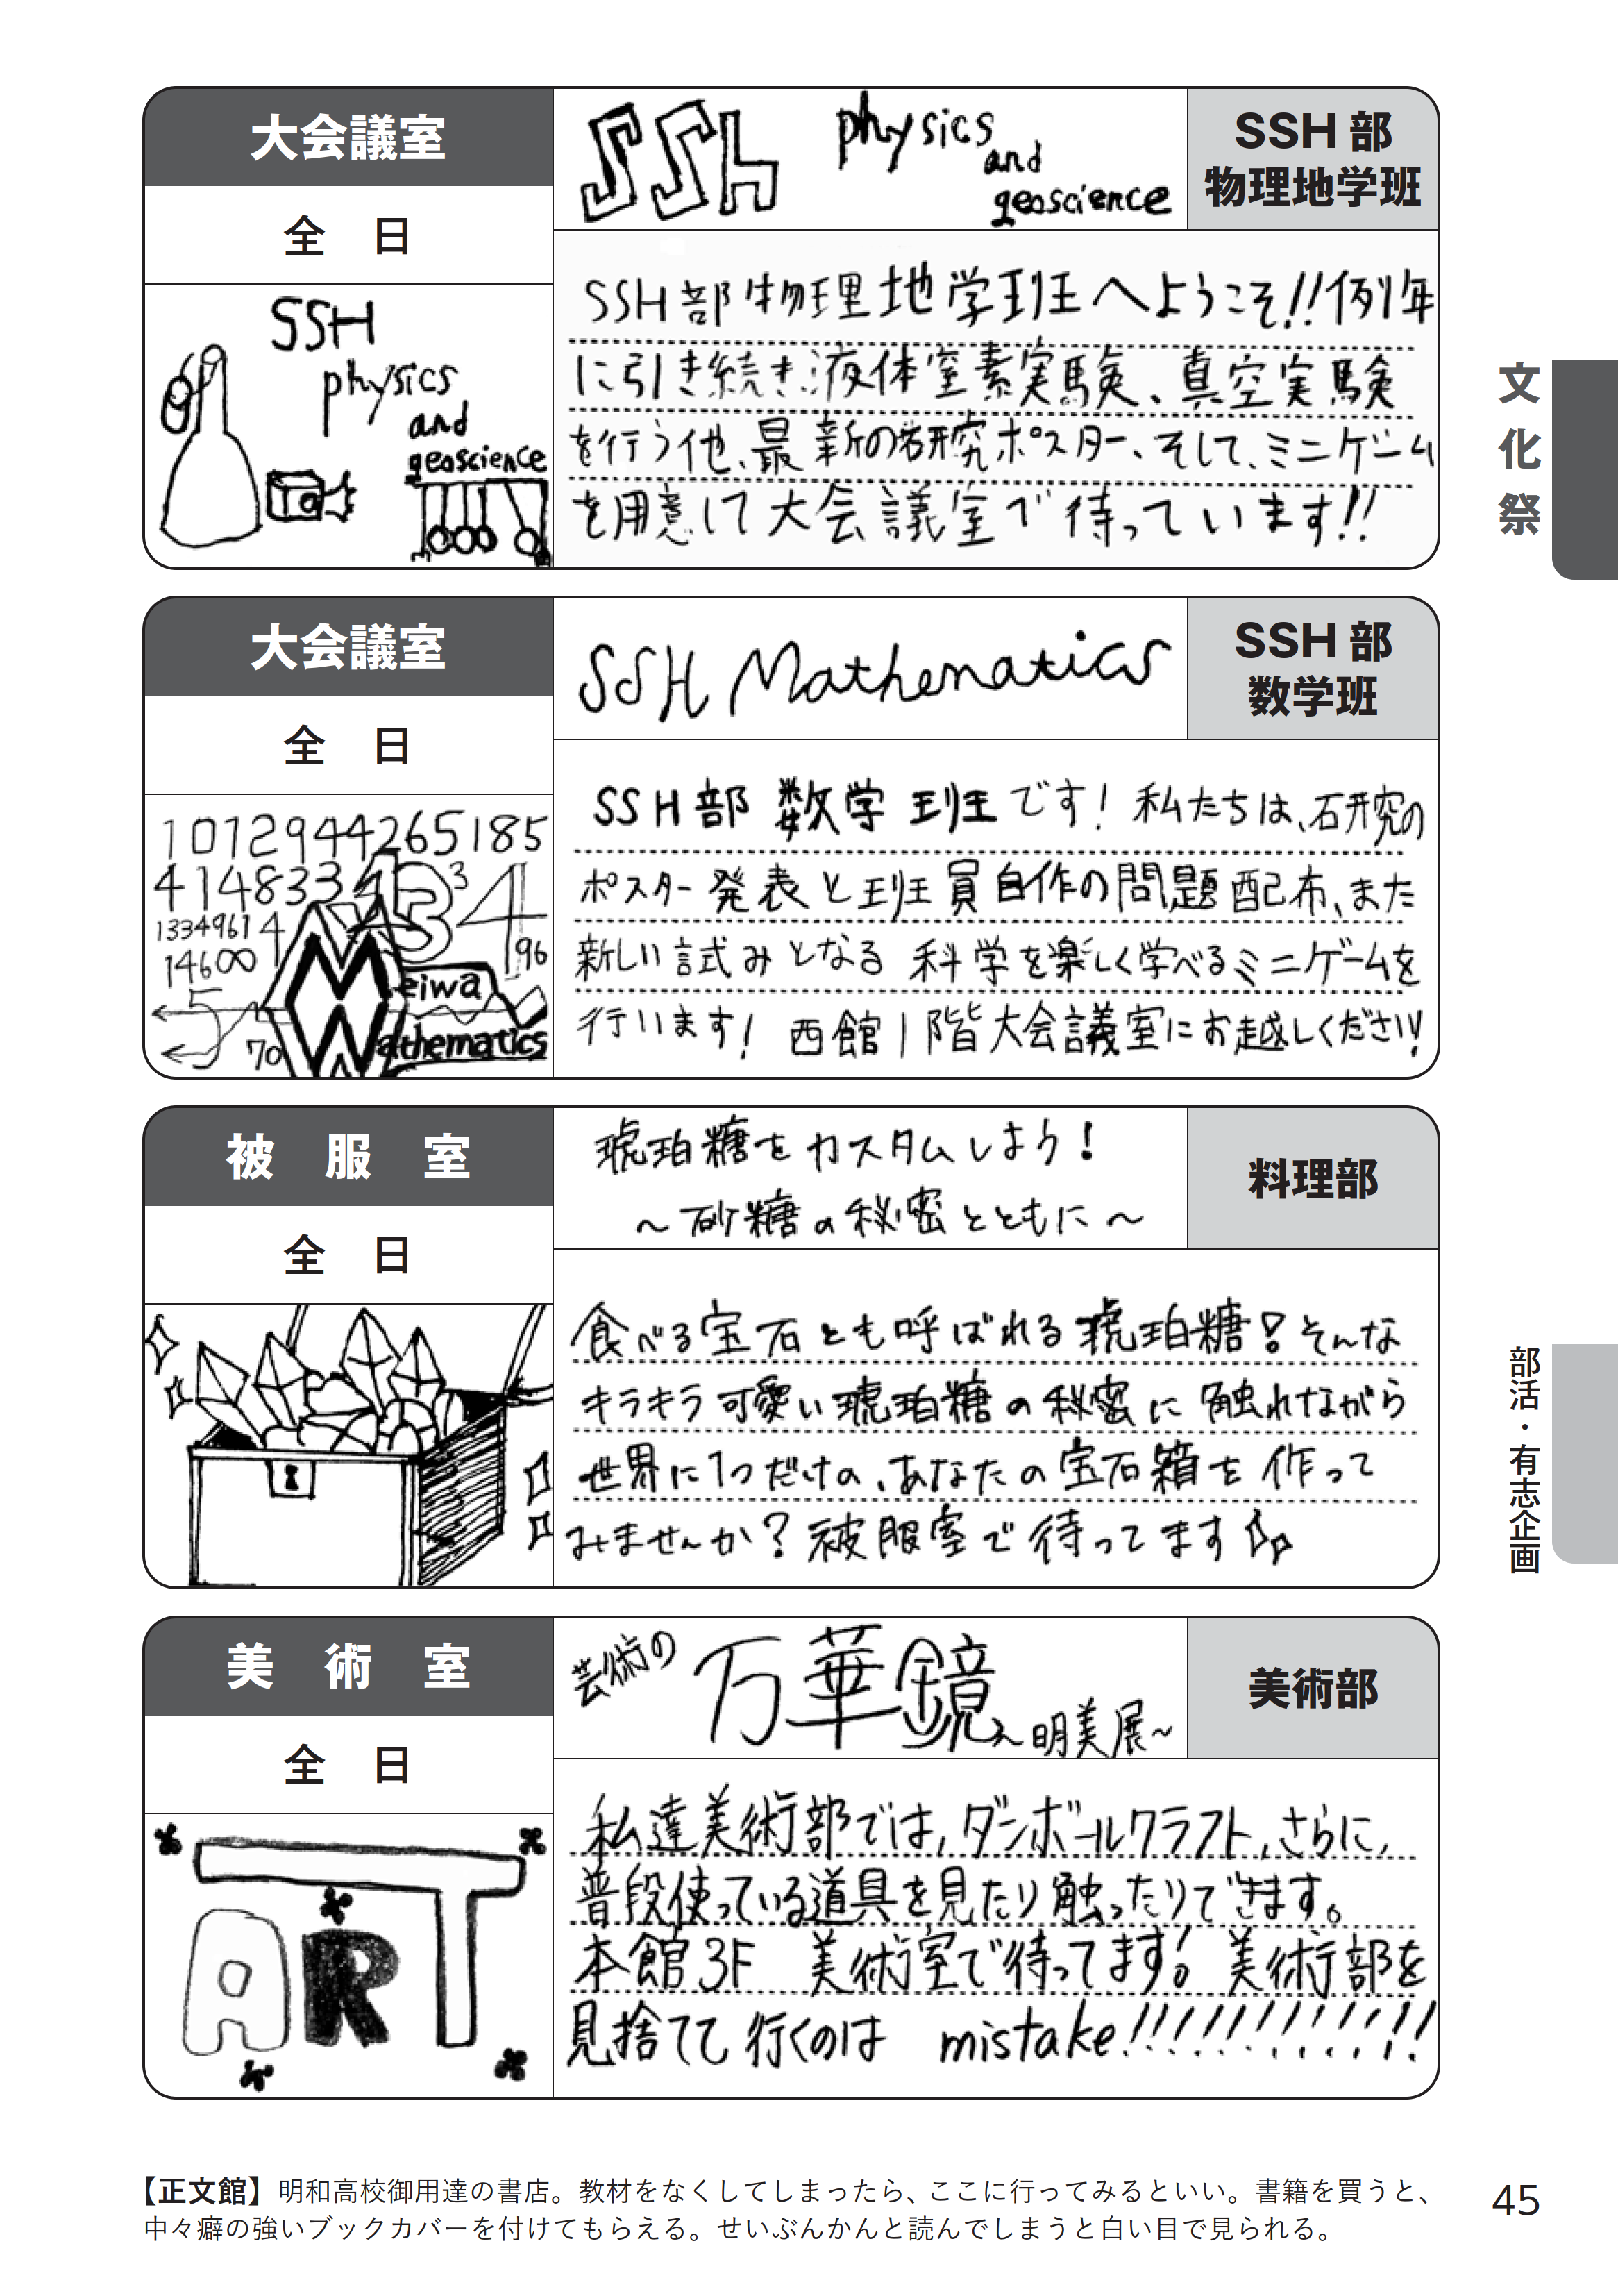 大会議室
全 日
SSH
physics
and
geoscience
SSH physics
and
geoscience
SSH 部
物理地学班
SSH部物理地学班へようこそ!!例年
に引き続き液体窒素実験、真空実験
を行う他、最新の研究ポスター、そして、ミニゲーム
を用意して大会議室で待っています!!
大会議室
全 日
1072944265185
4148334
3
3
4
1334961
4
146∞
96
5
70
Meiwa
Mathematics
SSH Mathematics
SSH 部
数学班
SSH部 数学班です! 私たちは、研究の
ポスター発表と班員自作の問題配布、また
新しい試みとなる 科学を楽しく学べるミニゲームを
行います! 西館1階大会議室にお越しください!
被 服 室
全 日
琥珀糖をカスタムしよう!
～砂糖の秘密とともに～
料理部
食べる宝石とも呼ばれる琥珀糖!そんな
キラキラ可愛い琥珀糖の秘密に触れながら
世界に1つだけの、あなたの宝石箱を作って
みませんか?被服室で待ってます
美 術 室
全 日
ART
芸術の
万華鏡
～明美展～
美術部
私達美術部では,ダンボールクラフト,さらに,
普段使っている道具を見たり触ったりできます。
本館3F 美術室で待ってます! 美術部を
見捨てて行くのは mistake!!!!!!!!!!!!
文化祭
部活・有志企画
【正文館】明和高校御用達の書店。教材をなくしてしまったら、ここに行ってみるといい。書籍を買うと、
中々癖の強いブックカバーを付けてもらえる。せいぶんかんと読んでしまうと白い目で見られる。
45